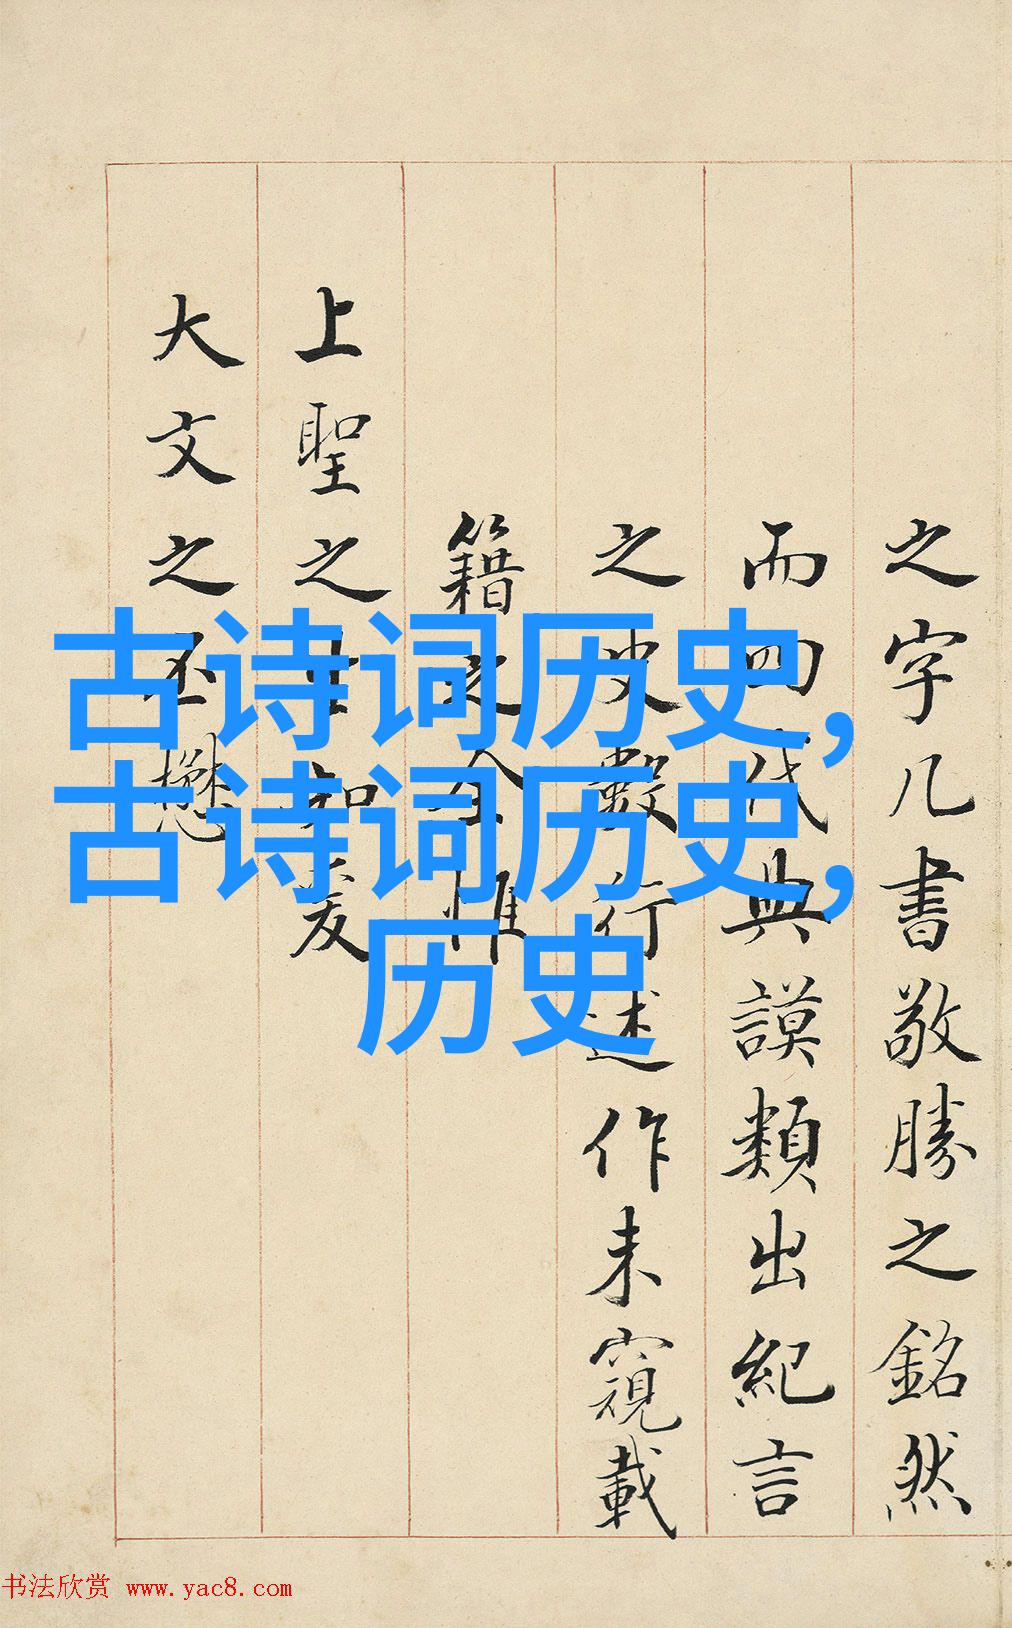 古诗词历史,
古诗词历史,
历史
之字几書敬勝之銘然
而四代典謨類出紀言
之數行述作未窺載
籍之全惟
上聖之
大文之丕懋
书法欣赏 www.yac8.com